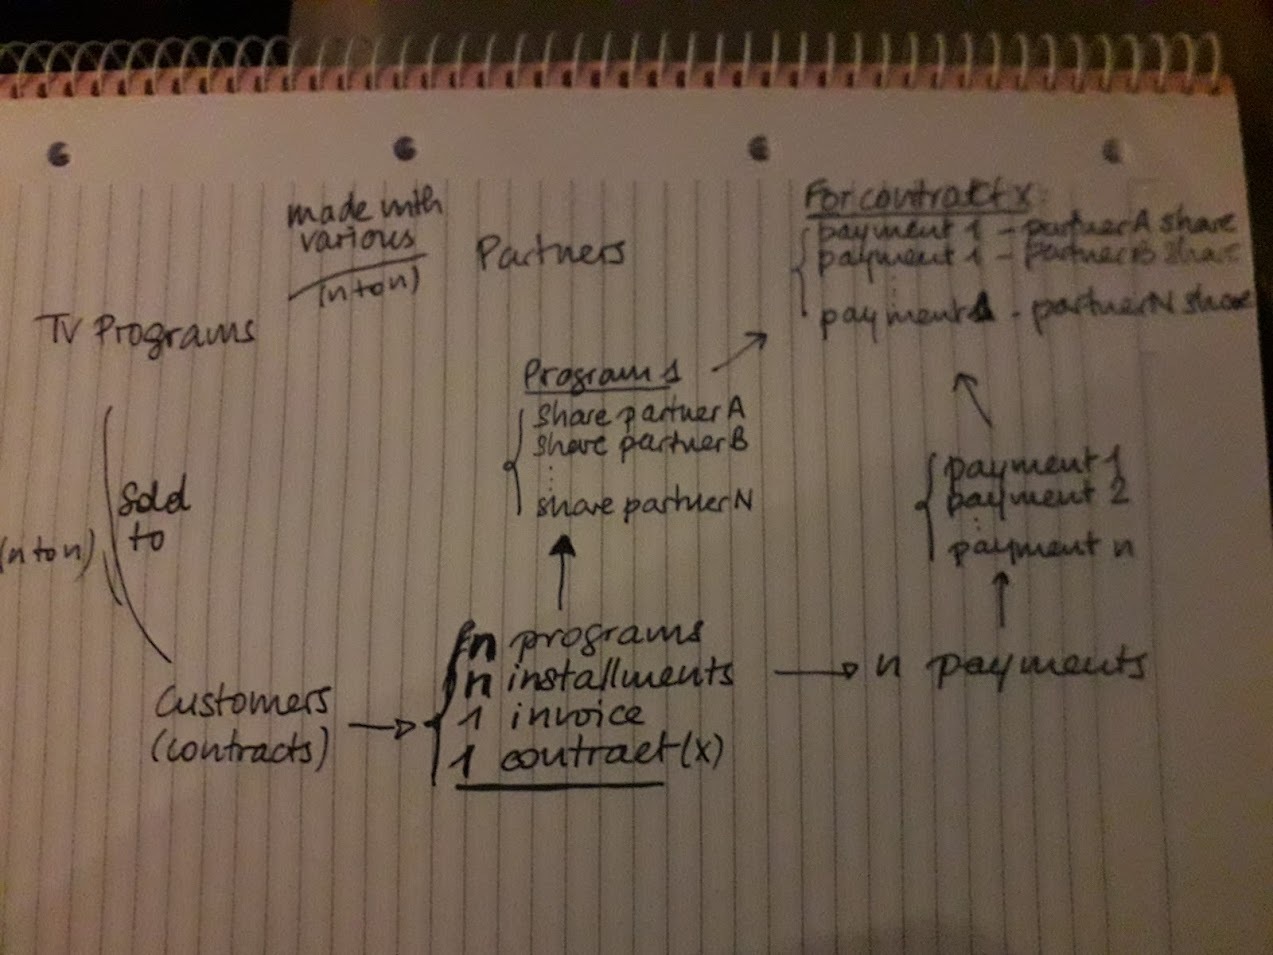 made with
various
(n to n)
Partners
TV Programs
For contract x:
payment 1 - partner A share
payment 1 - partner B share
payment 1 - partner N share
Program 1
share partner A
share partner B
share partner N
Sold
to
(n to n)
payment 1
payment 2
payment n
n programs
n installments
1 invoice
1 contract (x)
n payments
Customers
(contracts)